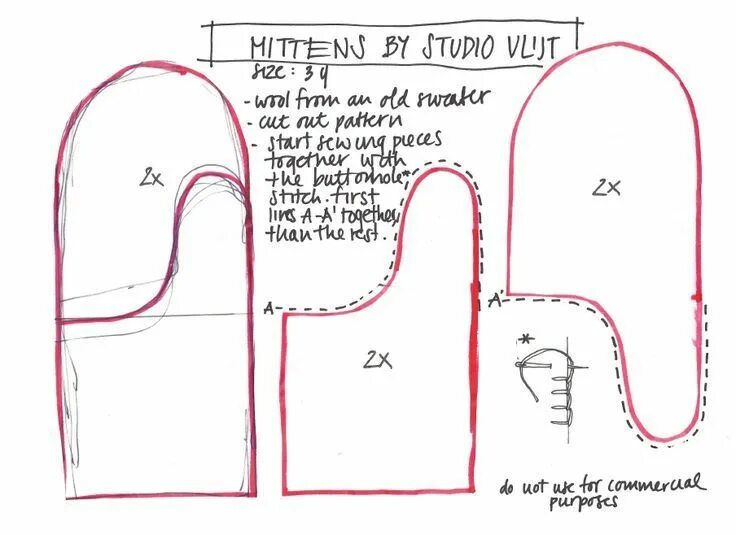 MITTENS BY STUDIO VLIJT
size: 3 y
- wool from an old sweater
- cut out pattern
- start sewing pieces
together with
the buttonhole*
stitch. first
lines A-A' together
than the rest.
2x
2x
2x
A
A'
*
do not use for commercial
purposes